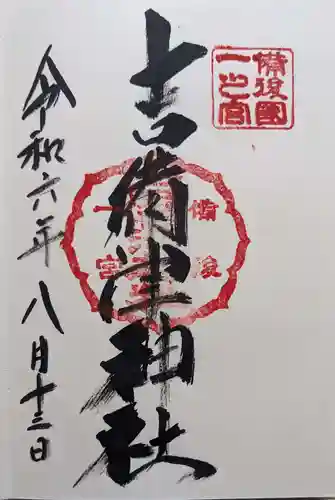 備後國
一之宮
吉備津神社
令和六年八月十三日